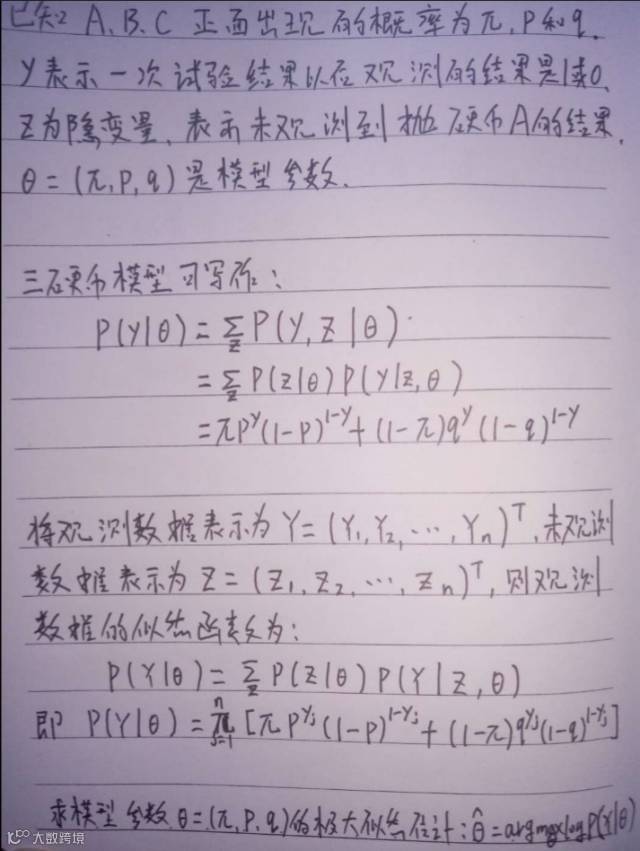 已知 A、B、C 正面出现的概率为π, P和q,
Y表示一次试验结果以后观测的结果是1或0,
Z为隐变量,表示未观测到抛硬币A的结果,
θ=(π,P,q)是模型参数.
三硬币模型可写作:
P(Y|θ)=∑_Z P(Y,Z|θ)
=∑_Z P(Z|θ)P(Y|Z,θ)
=πP^Y(1-P)^{1-Y}+(1-π)q^Y(1-q)^{1-Y}
将观测数据表示为Y=(Y₁,Y₂,…,Yₙ)^T,未观测
数据表示为Z=(Z₁,Z₂,…,Zₙ)^T,则观测
数据的似然函数为:
P(Y|θ)=∑_Z P(Z|θ)P(Y|Z,θ)
即 P(Y|θ)=∏_{j=1}^{n}[πP^{Y_j}(1-P)^{1-Y_j}+(1-π)q^{Y_j}(1-q)^{1-Y_j}]
求模型参数θ=(π,P,q)的极大似然估计:θ̂=argmax log P(Y|θ)
大数跨境